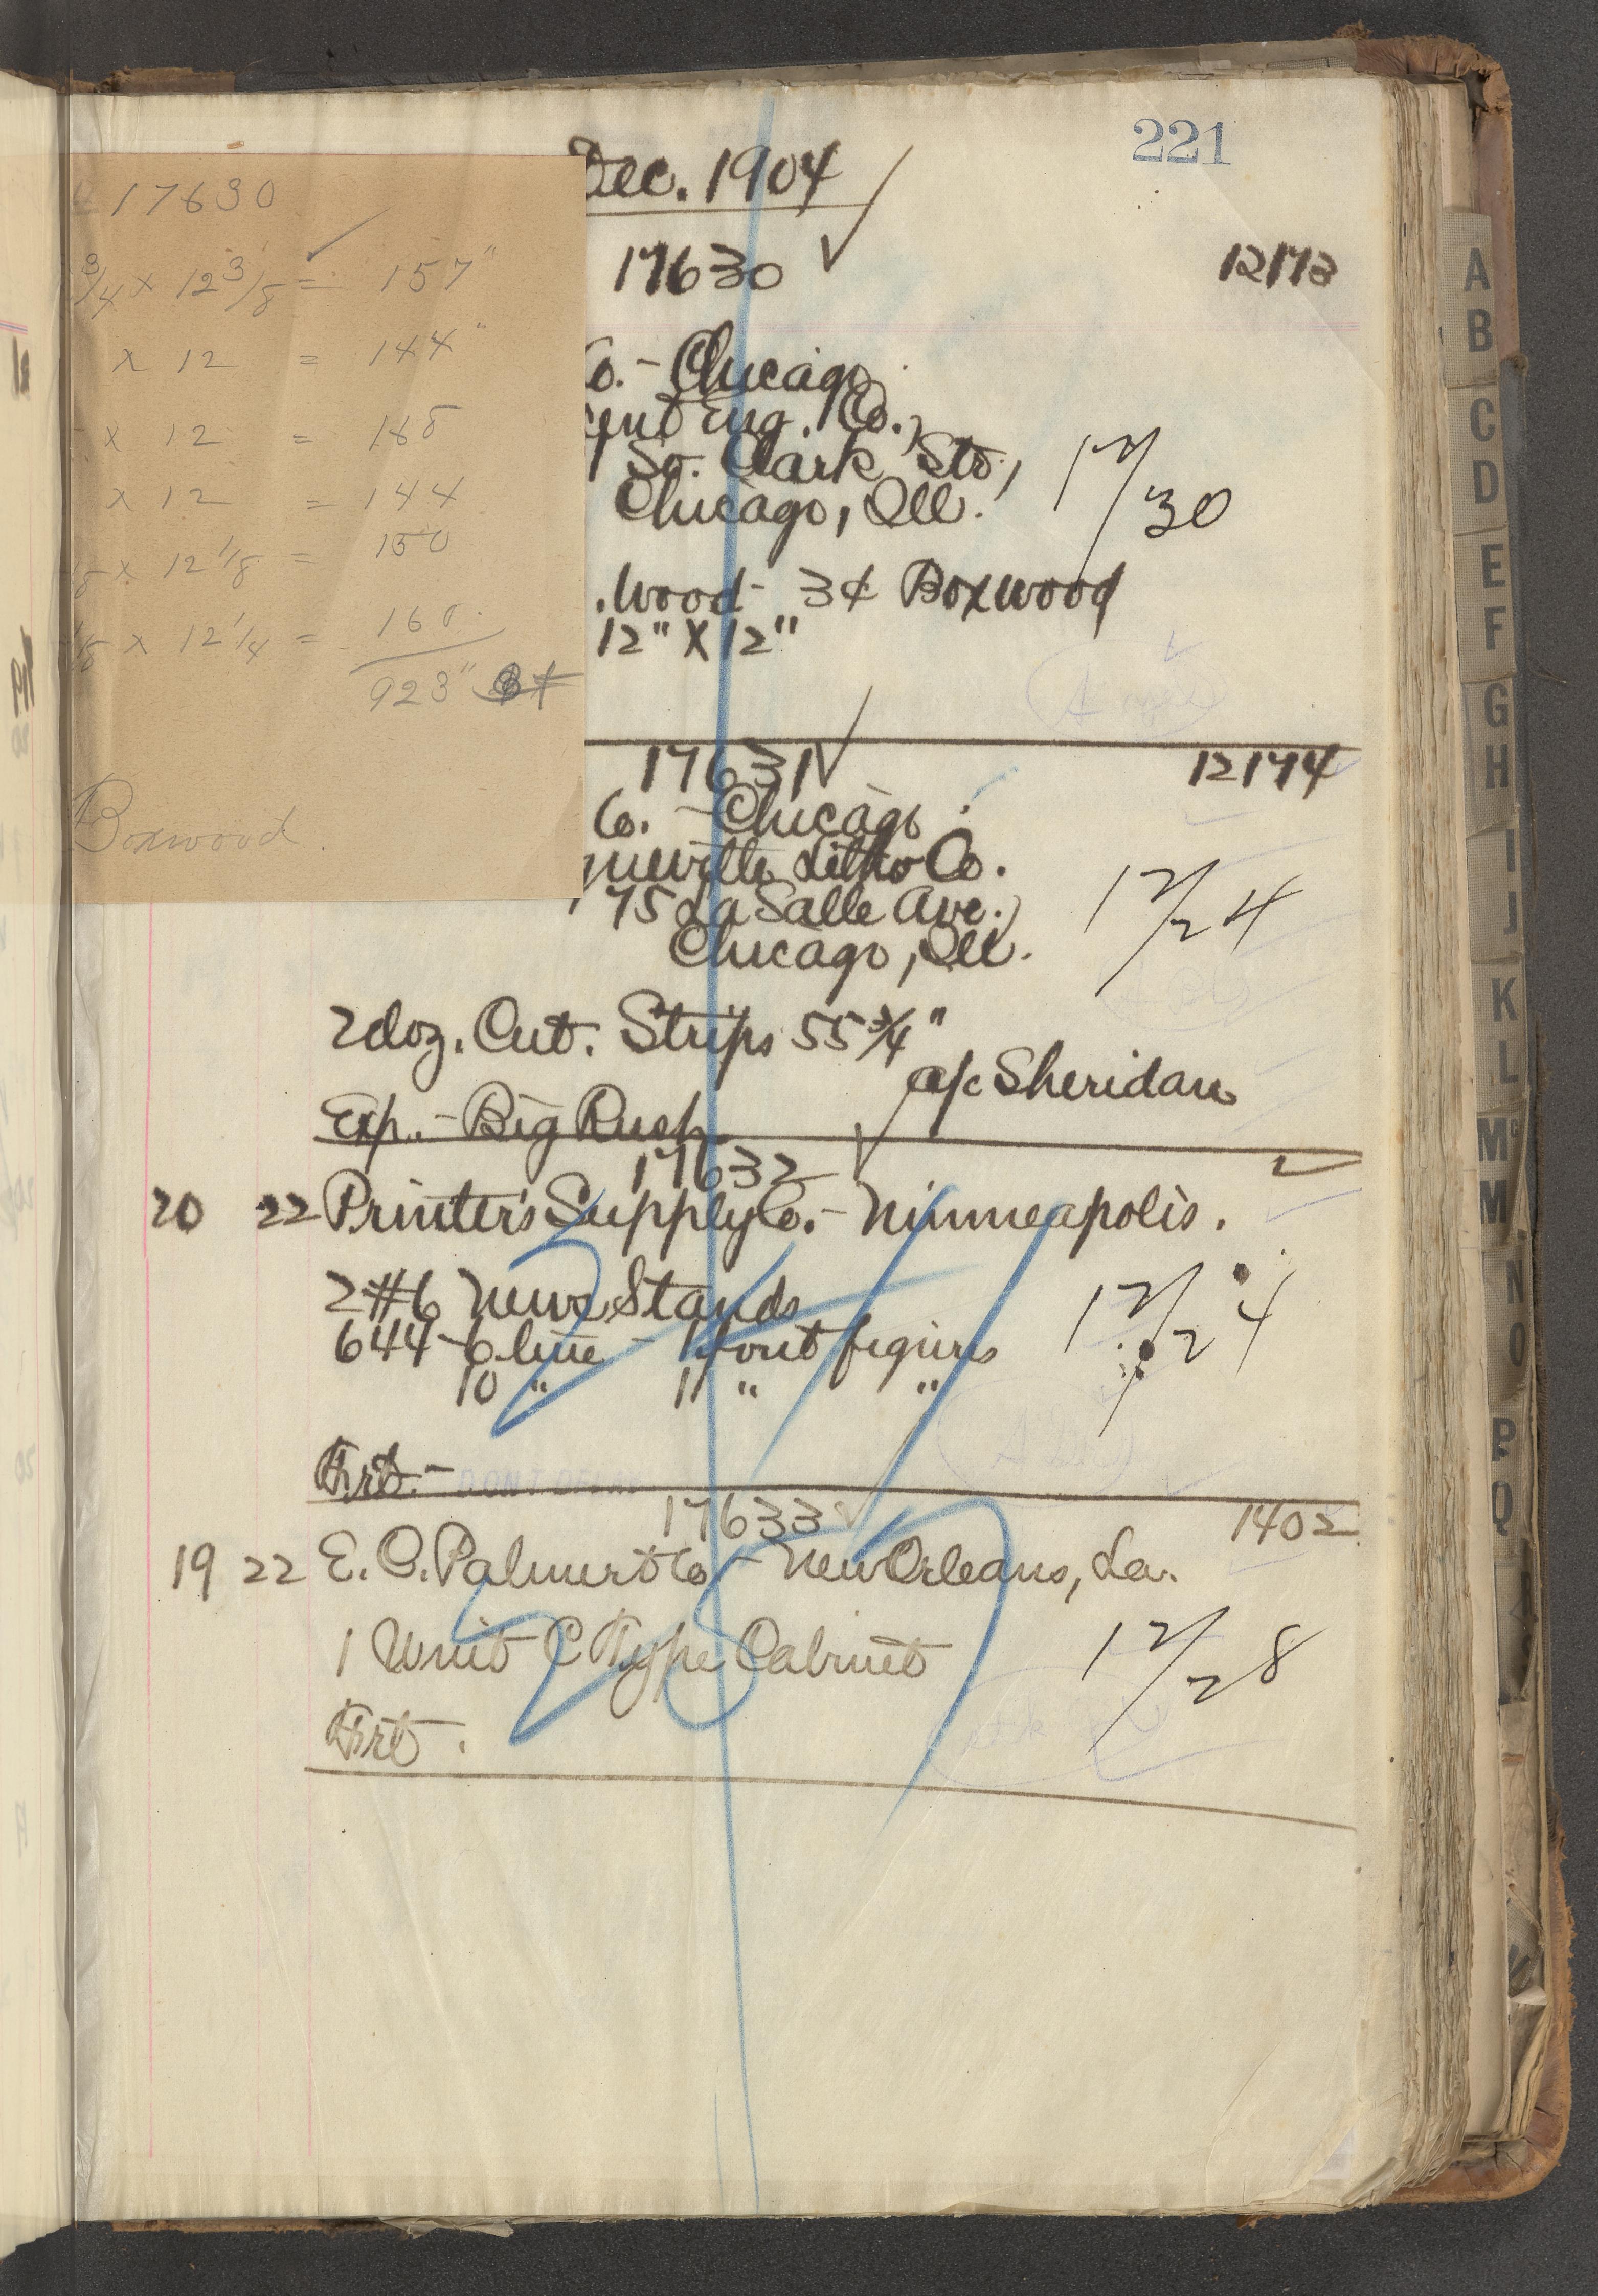 221
Dec. 1904
17630
3/4 x 12 3/8 = 157"
x 12 = 144"
x 12 = 168
x 12 = 144
x 12 1/8 = 150
x 12 1/4 = 160
923"
Boxwood
17630 12173
Co. - Chicago
Eng. Co.,
So. Clark Sts.,
Chicago, Ill.
12/30
. Wood - 3¢ Boxwood
12" X 12"
17631 12174
Co. - Chicago
Litho Co.
175 La Salle Ave.,
Chicago, Ill.
12/24
2 doz. Cut. Strips 55 3/4"
a/c Sheridan
Exp. - Big Rush
17632
20 22 Printer's Supply Co. - Minneapolis.
2 #6 News Stands
644 - 6 line - 1 font figures
10 " 11 " "
12/24
Frt. -
17633 1402
19 22 E. C. Palmer & Co - New Orleans, La.
1 Unit C Type Cabinet
12/28
Frt.
A
B
C
D
E
F
G
H
I
J
K
L
Mc
M
N
O
P
Q